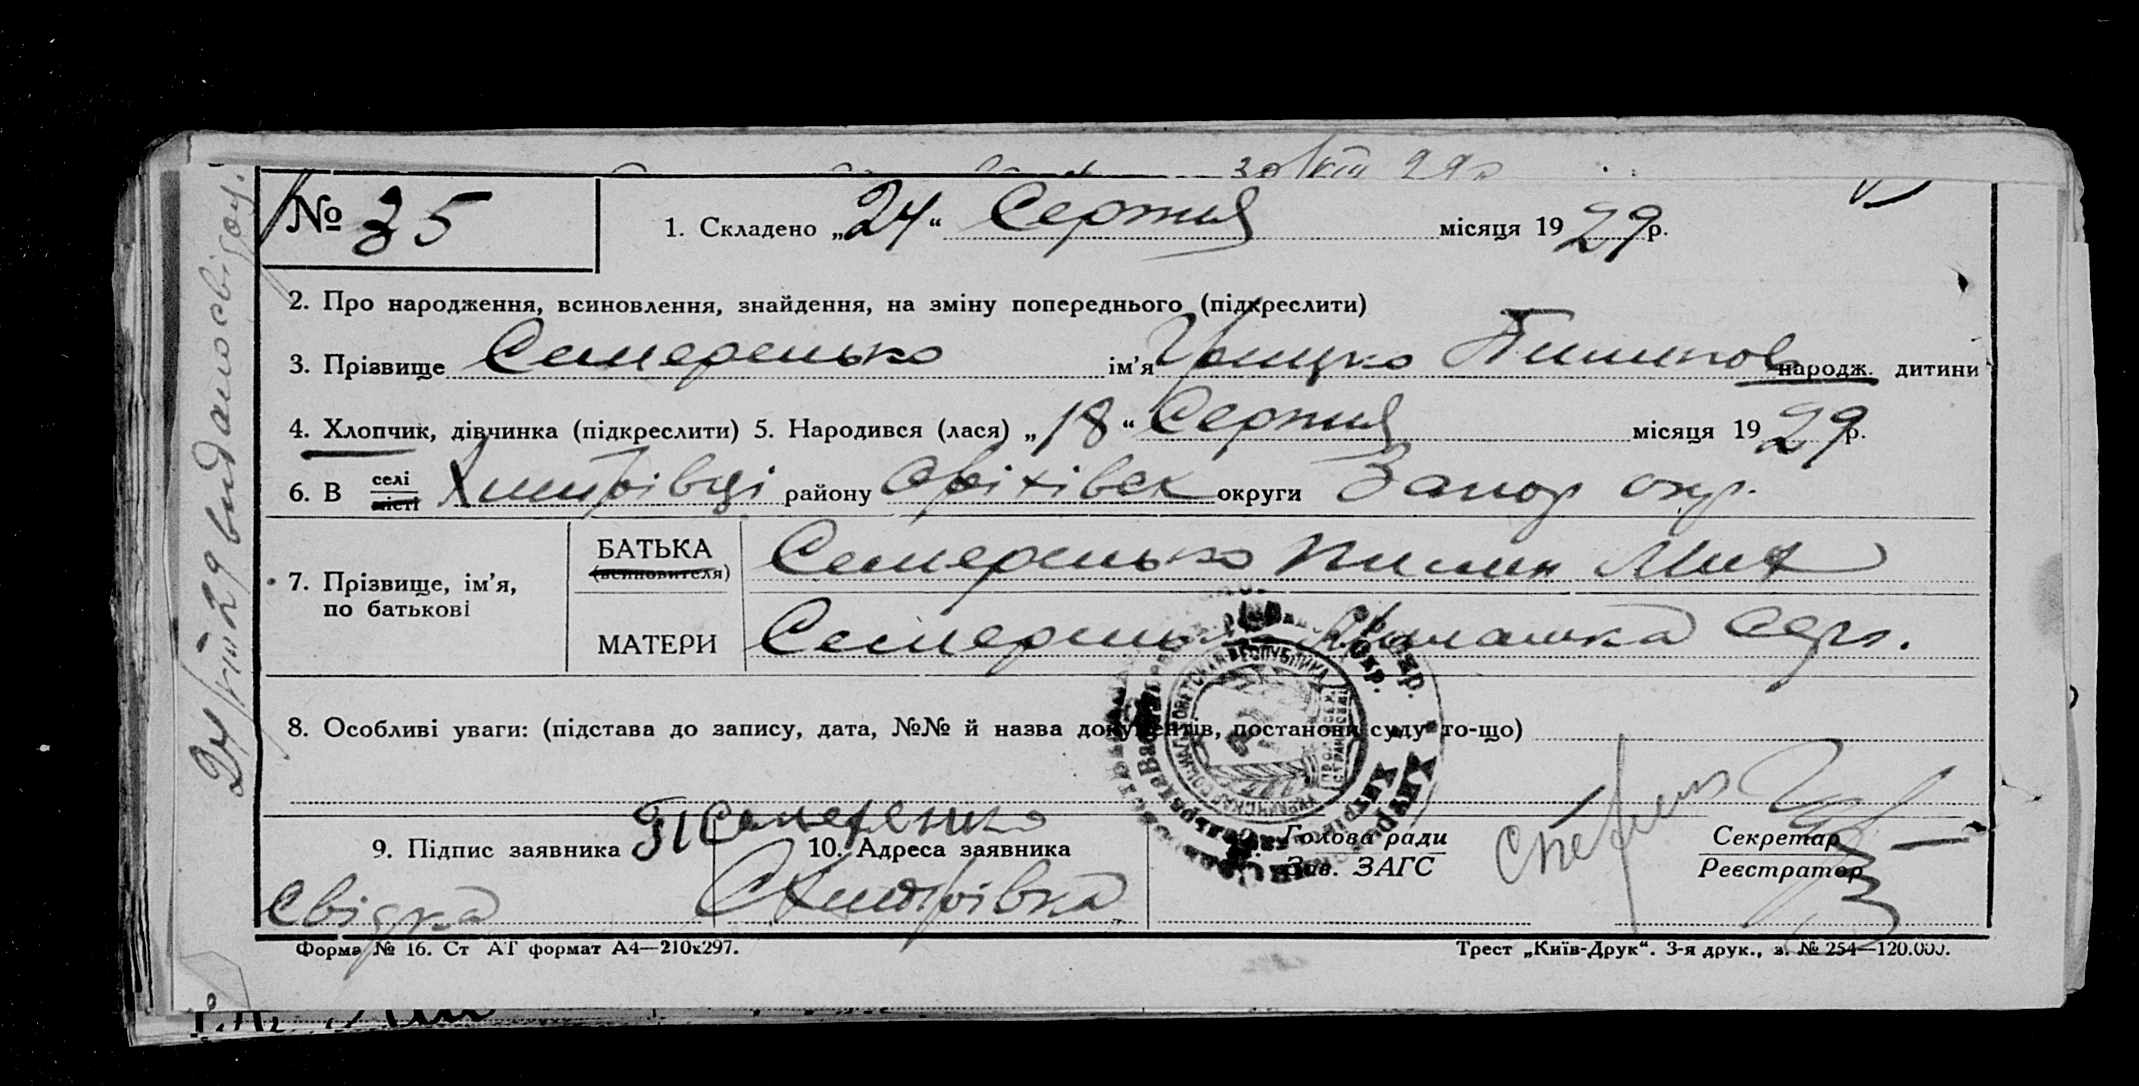 № 35
1. Складено „24“ Серпня місяця 1929 р.
2. Про народження, всиновлення, знайдення, на зміну попереднього (підкреслити)
3. Прізвище Семеренько ім'я Грицько Пилипов народж. дитини
4. Хлопчик, дівчинка (підкреслити) 5. Народився (лася) „18“ Серпня місяця 1929 р.
6. В селі місті Хитрівці району Оріхівск округи Запор окр.
7. Прізвище, ім'я, по батькові
БАТЬКА (всиновителя) Семеренько Пилип Мих
МАТЕРИ Семеренько
8. Особливі уваги: (підстава до запису, дата, №№ й назва документів, постанови суду то-що)
9. Підпис заявника П Семеренко
10. Адреса заявника
С Хитрівка
Голова ради
Зав. ЗАГС
Секретар
Реєстратор
Форма № 16. Ст АТ формат А4—210х297.
Трест „Київ-Друк“. 3-я друк., з. № 254—120.000.
24/VIII 29 видано свідоц.